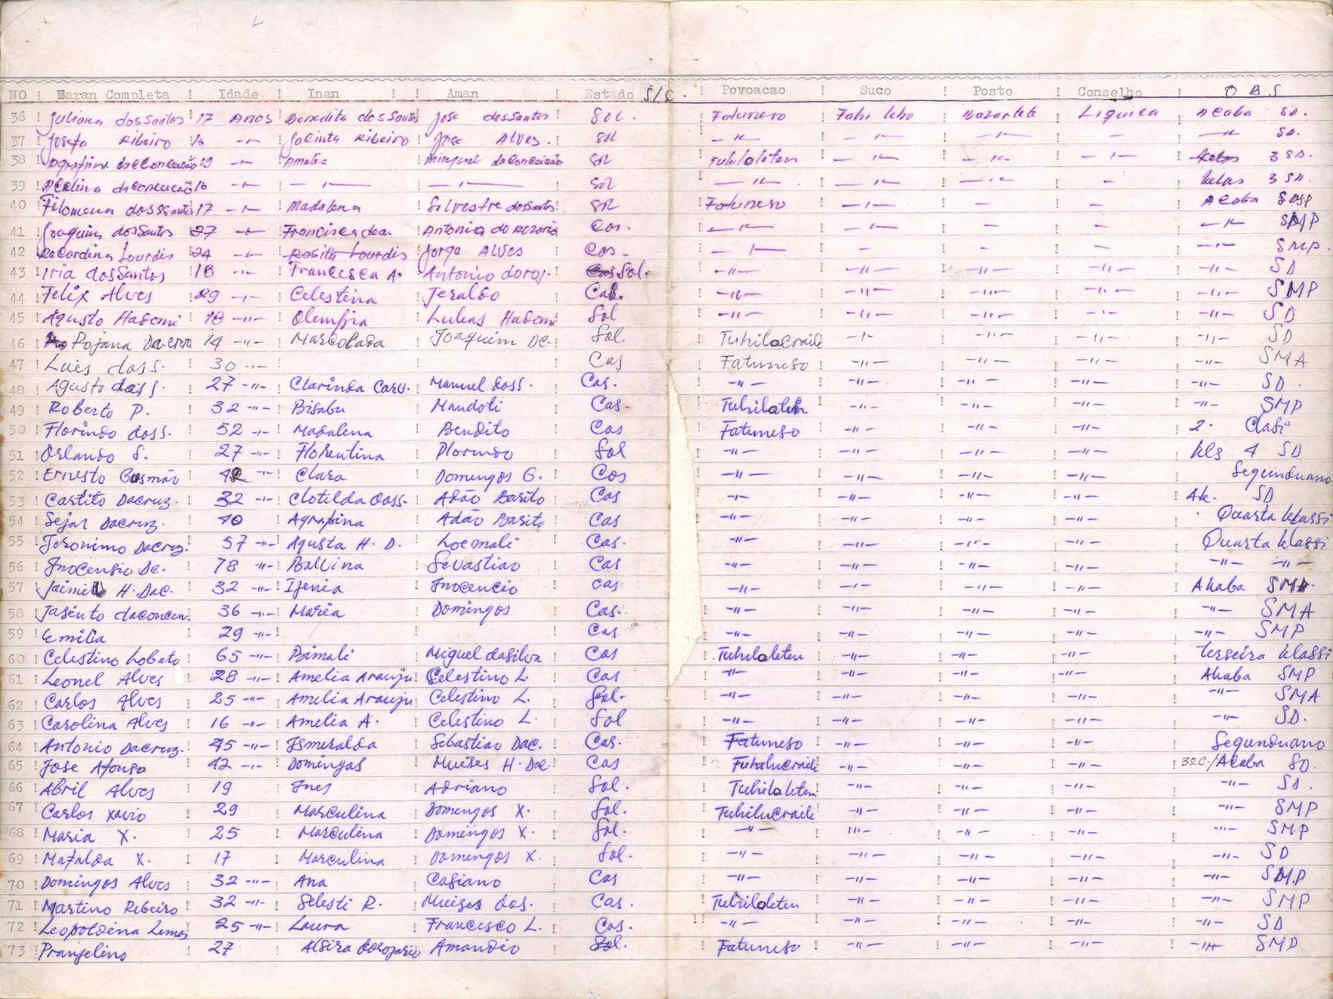 NO ! Naran Completa ! Idade ! Inan ! ! Aman ! Estado S/C. ! Povoacao ! Suco ! Posto ! Conselho ! O B S
36 ! Juliana dos Santos ! 17 Anos ! Benedita dos Santos ! Jose dos Santos ! Sol. ! Fatuneso ! Fahi lebo ! Bazartete ! Liquica ! Acaba SD.
37 ! Josefa Ribeiro 16 -"- ! Jacinta Ribeiro ! Jose Alves. ! Sol ! -"- ! -"- ! -"- ! - ! -"- SD.
38 ! daConceicao 19 -"- ! Amelia ! Miguel daConceicao ! Sol ! Tuhiloleten ! -"- ! -"- ! - ! 3 SD.
39 ! daConceicao 16 -"- ! -"- ! -"- ! Sol ! -"- ! -"- ! - ! - ! 3 SD.
40 ! Filomena dos Santos ! 17 -"- ! Madalena ! Silvestre dos Santos ! Sol ! Fatuneso ! -"- ! - ! - ! Acaba SMP
41 ! Joaquim dos Santos 27 -"- ! Francisca ! Antonio do Rozario ! Cas. ! -"- ! -"- ! - ! - ! -"- SMP
42 ! Lourdes 24 -"- ! Rosita Lourdis ! Jorge Alves ! Cas. ! -"- ! - ! - ! - ! -"- SMP.
43 ! Iria dos Santos ! 18 -"- ! Francisca A. ! Antonio doros. ! Sol. ! -"- ! -"- ! -"- ! -"- ! -"- SD
44 ! Felix Alves ! 29 -"- ! Celestina ! Jeraldo ! Cas. ! -"- ! -"- ! -"- ! -"- ! -"- SMP
45 ! Agusto Hasomi ! 18 -"- ! Olimpia ! Lukas Hasomi ! Sol ! -"- ! -"- ! -"- ! -"- ! -"- SD
46 ! Pojana Dacruz ! 14 -"- ! Marcolada ! Joaquim De ! Sol. ! Tuhilocraile ! -"- ! -"- ! -"- ! -"- SD
47 ! Luis dos S. ! 30 -"- ! ! ! Cas ! Fatuneso ! -"- ! -"- ! -"- ! -"- SMA
48 ! Agusto dos S. ! 27 -"- ! Clarinda Carv. ! Manuel doss. ! Cas. ! -"- ! -"- ! -"- ! -"- ! -"- SD.
49 ! Roberto P. ! 32 -"- ! Bisabu ! Maudoti ! Cas. ! Tuhiloleten ! -"- ! -"- ! -"- ! -"- SMP
50 ! Florindo doss. ! 52 -"- ! Madalena ! Bendito ! Cas ! Fatuneso ! -"- ! -"- ! -"- ! 2. Clasi
51 ! Orlando S. ! 27 -"- ! Florentina ! Florindo ! Sol ! -"- ! -"- ! -"- ! -"- ! kls 4 SD
52 ! Ernesto Gusmão ! 42 -"- ! Clara ! Domingos G. ! Cas ! -"- ! -"- ! -"- ! -"- ! Segunduano
53 ! Castito Dacruz. ! 32 -"- ! Clotilda doss. ! Adão Basito ! Cas ! -"- ! -"- ! -"- ! -"- ! Ak. SD
54 ! Sejar Dacruz. ! 40 ! Agrapina ! Adão Basito ! Cas ! -"- ! -"- ! -"- ! -"- ! Quarta klassi
55 ! Jeronimo Dacruz. ! 37 -"- ! Agusta H. D. ! Loemali ! Cas. ! -"- ! -"- ! -"- ! -"- ! Quarta klassi
56 ! Inocensio De. ! 78 -"- ! Balvina ! Sevastiao ! Cas ! -"- ! -"- ! -"- ! -"- ! -"- -"-
57 ! Jaime H. Dac. ! 32 -"- ! Ijenia ! Inocencio ! Cas ! -"- ! -"- ! -"- ! -"- ! Akaba SMA
58 ! Jasinto daconcen. ! 36 -"- ! Maria ! Domingos ! Cas. ! -"- ! -"- ! -"- ! -"- ! -"- SMA
59 ! Emilia ! 29 -"- ! ! ! Cas ! -"- ! -"- ! -"- ! -"- ! -"- SMP
60 ! Celestino Lobato ! 65 -"- ! Bimali ! Miguel dasilva ! Cas ! Tuhiloleten ! -"- ! -"- ! -"- ! terseira klassi
61 ! Leonel Alves ! 28 -"- ! Amelia Araujo ! Celestino L ! Cas ! -"- ! -"- ! -"- ! -"- ! Akaba SMP
62 ! Carlos Alves ! 25 -"- ! Amelia Araujo ! Celestino L. ! Sol. ! -"- ! -"- ! -"- ! -"- ! -"- SMA
63 ! Carolina Alves ! 16 -"- ! Amelia A. ! Celestino L. ! Sol ! -"- ! -"- ! -"- ! -"- ! -"- SD.
64 ! Antonio Dacruz. ! 45 -"- ! Esmeralda ! Sebastiao Dac. ! Cas. ! Fatuneso ! -"- ! -"- ! -"- ! Segunduano
65 ! Jose Afonso ! 42 -"- ! Domingas ! Muises H. De ! Cas ! Tuhilucraile ! -"- ! -"- ! -"- ! Akaba SD.
66 ! Abril Alves ! 19 ! Ines ! Adriano ! Sol. ! Tuhiloleten ! -"- ! -"- ! -"- ! -"- SD.
67 ! Carlos Xavio ! 29 ! Marculina ! Domingos X. ! Sol. ! Tuhilucraile ! -"- ! -"- ! -"- ! -"- SMP
68 ! Maria X. ! 25 ! Marculina ! Domingos X. ! Sol. ! -"- ! -"- ! -"- ! -"- ! -"- SMP
69 ! Mafalda X. ! 17 ! Marculina ! Domingos X. ! Sol. ! -"- ! -"- ! -"- ! -"- ! -"- SD
70 ! Domingos Alves ! 32 -"- ! Ana ! Casiano ! Cas ! -"- ! -"- ! -"- ! -"- ! -"- SMP
71 ! Martino Ribeiro ! 32 -"- ! Selesti R. ! Muises dos. ! Cas. ! Tuhiloleten ! -"- ! -"- ! -"- ! -"- SMP
72 ! Leopoldina Lemos ! 25 -"- ! Laura ! Francisco L. ! Cas. ! -"- ! -"- ! -"- ! -"- ! -"- SD
73 ! Pranjelino ! 27 ! Alsira dorosario ! Amandio ! Sol. ! Fatuneso ! -"- ! -"- ! -"- ! -"- SMP